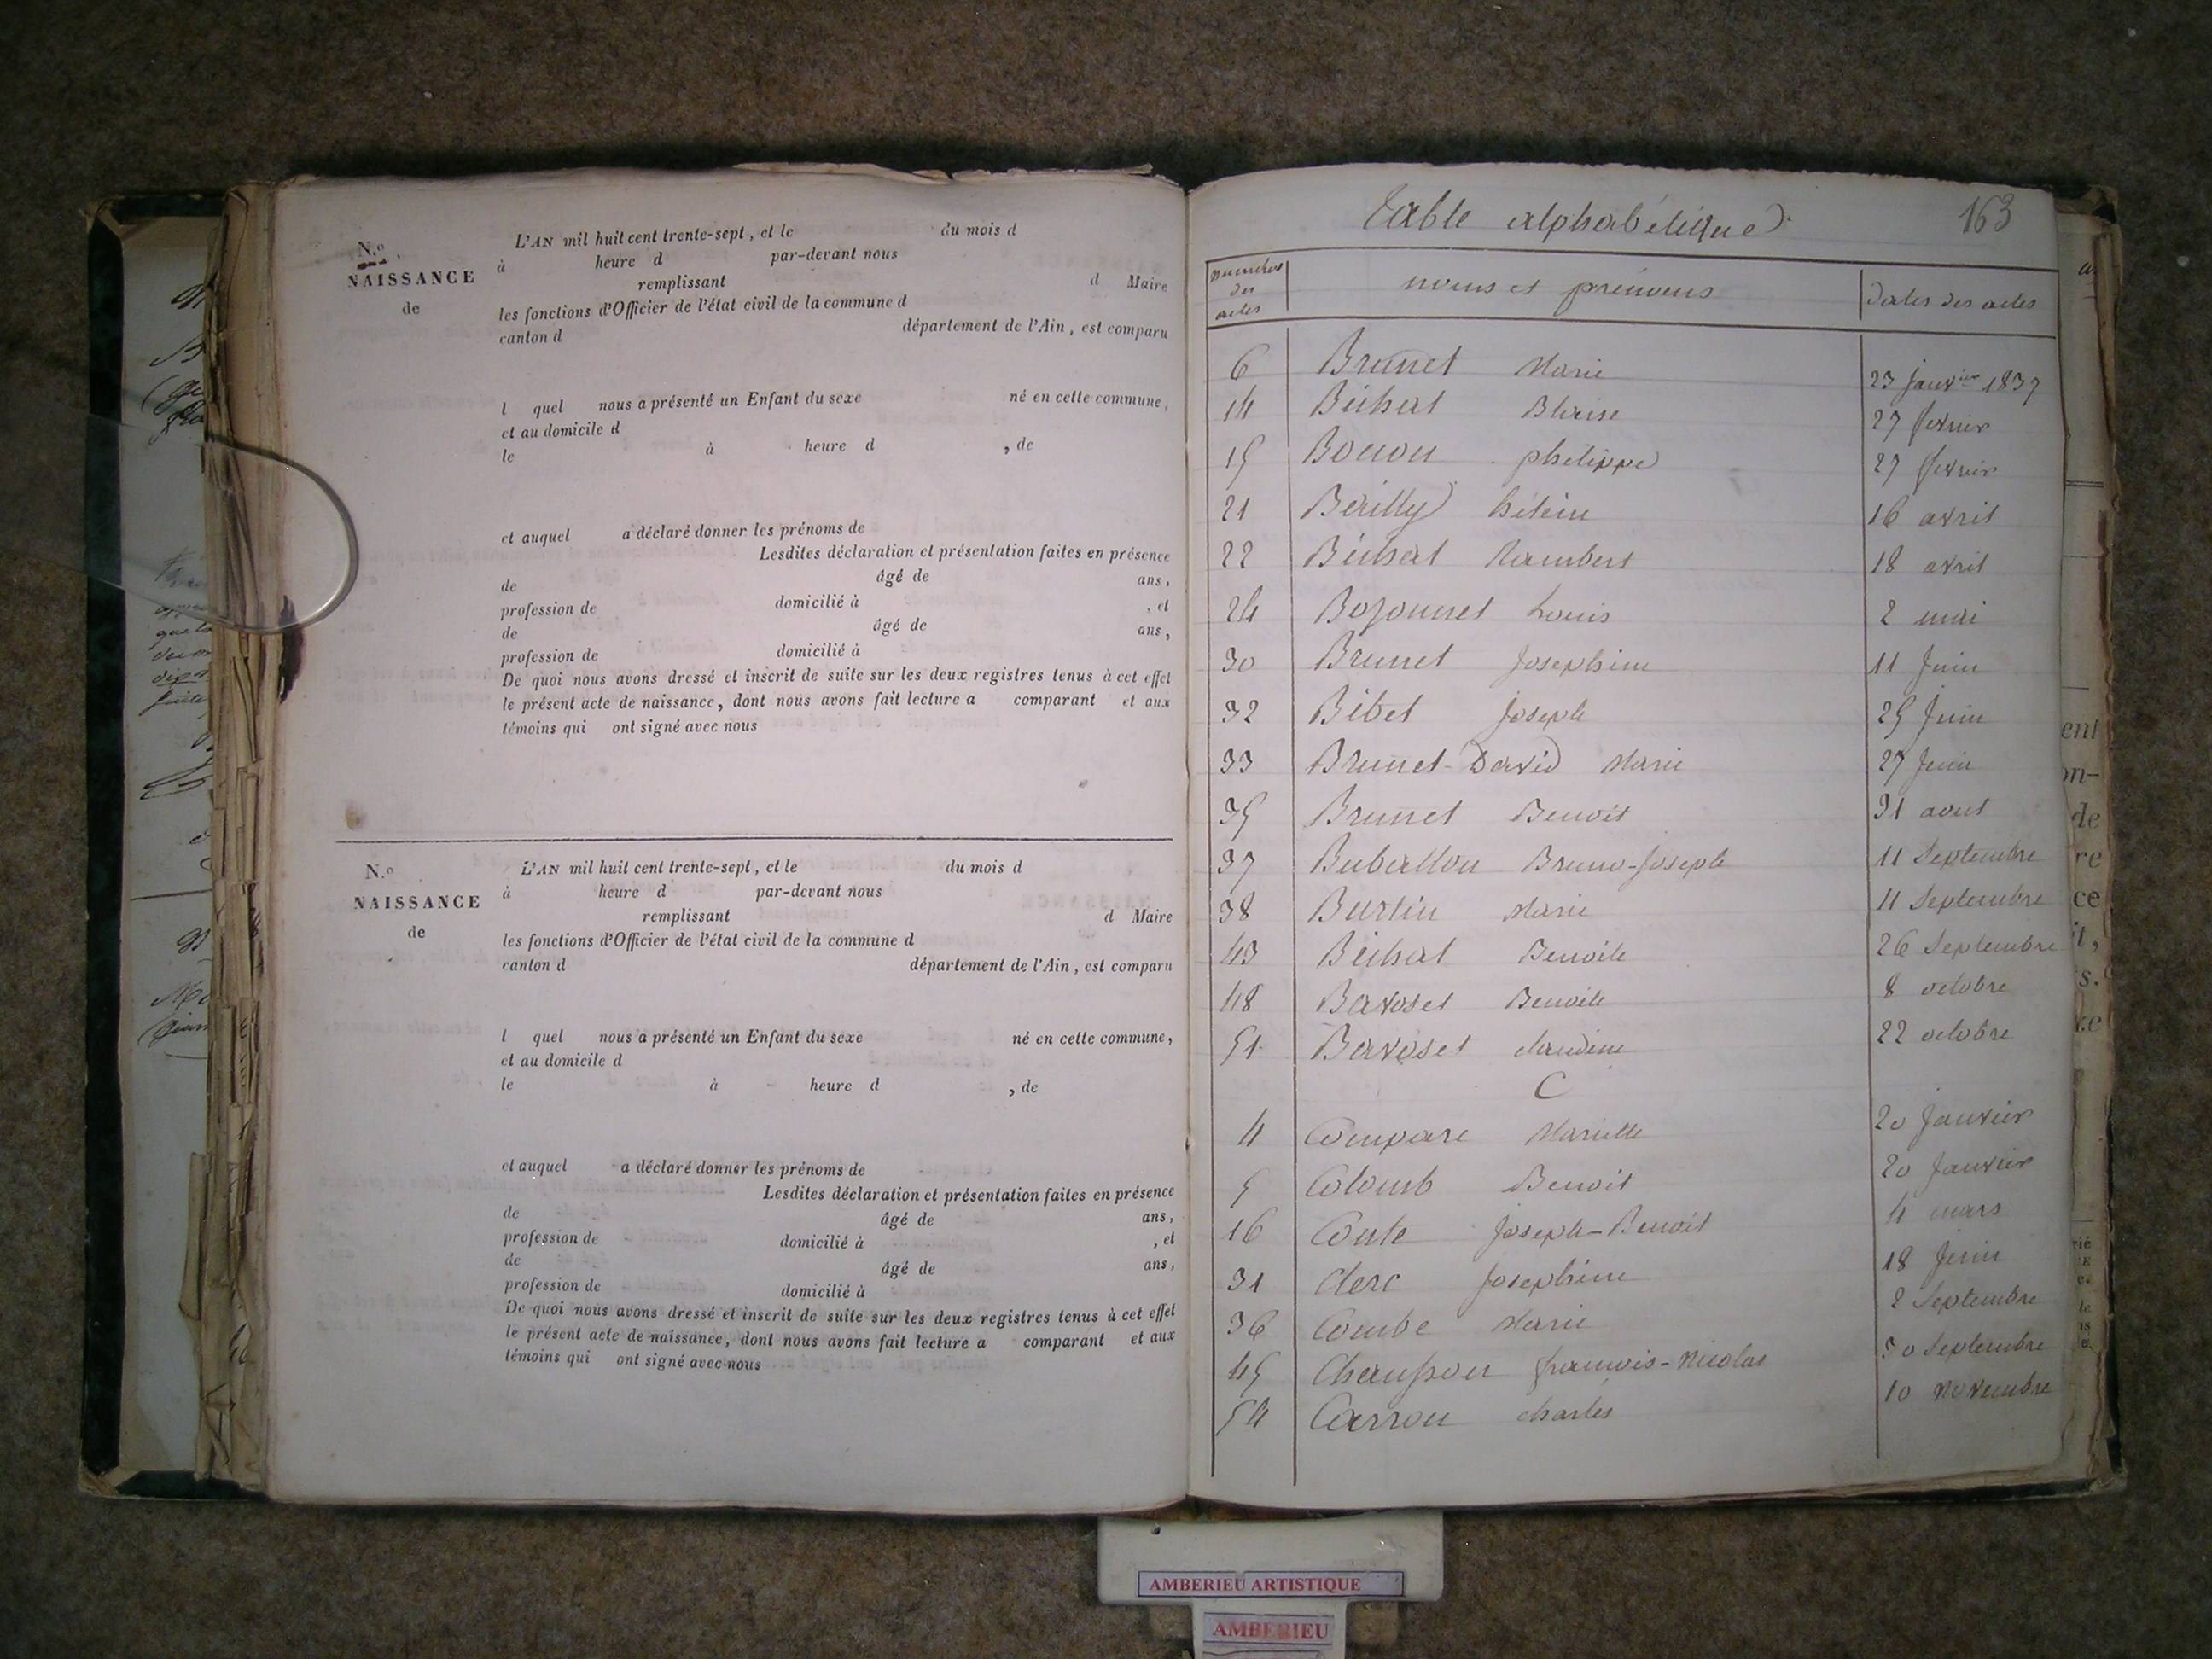 N.º
NAISSANCE
de
L'AN mil huit cent trente-sept, et le du mois d
à heure d par-devant nous
remplissant d Maire
les fonctions d'Officier de l'état civil de la commune d
canton d département de l'Ain, est comparu
l quel nous a présenté un Enfant du sexe né en cette commune,
et au domicile d
le à heure d , de
et auquel a déclaré donner les prénoms de
Lesdites déclaration et présentation faites en présence
de âgé de ans,
profession de domicilié à , et
de âgé de ans,
profession de domicilié à
De quoi nous avons dressé et inscrit de suite sur les deux registres tenus à cet effet
le présent acte de naissance, dont nous avons fait lecture a comparant et aux
témoins qui ont signé avec nous
N.º
NAISSANCE
de
L'AN mil huit cent trente-sept, et le du mois d
à heure d par-devant nous
remplissant d Maire
les fonctions d'Officier de l'état civil de la commune d
canton d département de l'Ain, est comparu
l quel nous a présenté un Enfant du sexe né en cette commune,
et au domicile d
le à heure d , de
et auquel a déclaré donner les prénoms de
Lesdites déclaration et présentation faites en présence
de âgé de ans,
profession de domicilié à , et
de âgé de ans,
profession de domicilié à
De quoi nous avons dressé et inscrit de suite sur les deux registres tenus à cet effet
le présent acte de naissance, dont nous avons fait lecture a comparant et aux
témoins qui ont signé avec nous
Table alphabétique 163
numéros des actes noms et prénoms Dates des actes
6 Brunet Marie 23 janvier 1837
14 Blaise 27 fevrier
15 philippe 27 fevrier
21 Bailly 16 avril
22 Rambert 18 avril
24 Bozonnet Louis 2 mai
30 Brunet Josephine 11 Juin
32 Bibet Joseph 25 Juin
33 Brunet-David Marie 27 Juin
35 Brunet Benoit 31 aout
37 Bruno-Joseph 11 Septembre
38 Burtin Marie 11 Septembre
43 Benoite 26 Septembre
48 Bavoset Benoite 8 octobre
51 Bavoset claudine 22 octobre
C
4 Compare Mariette 20 Janvier
5 Colomb Benoit 20 Janvier
16 Conte Joseph-Benoit 4 mars
31 Clerc Josephine 18 Juin
36 Combe Marie 2 Septembre
45 françois-Nicolas 30 Septembre
54 Carron charles 10 Novembre
AMBERIEU ARTISTIQUE
AMBERIEU